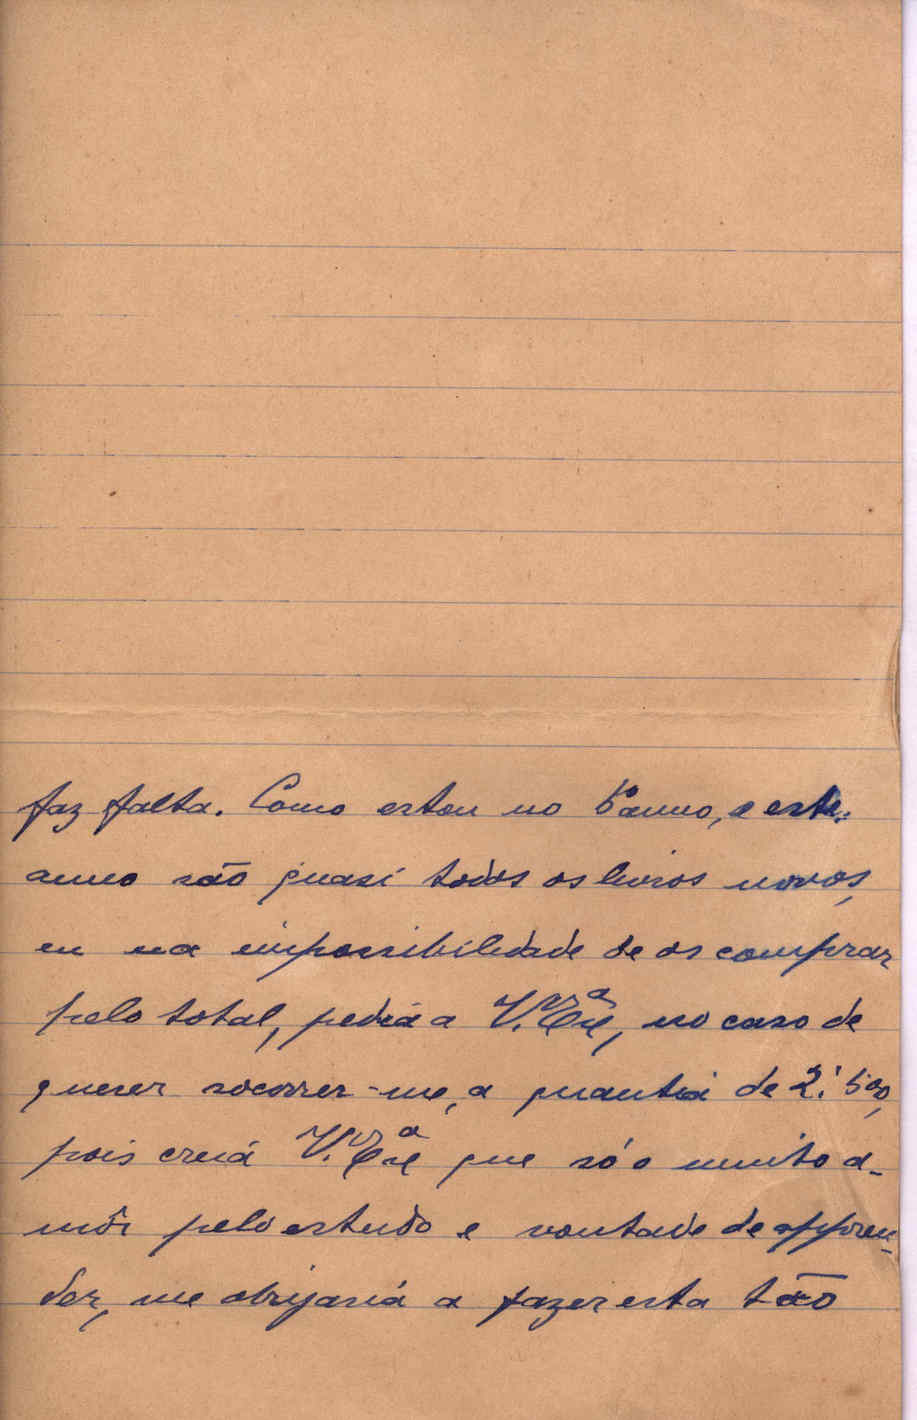 faz falta. Como estou no 5º anno, e este
anno são quasi todos os livros novos,
eu na impossibilidade de os comprar
pelo total, pedia a V. Exª, no caso de
querer socorrer-me, a quantia de
pois creia V. Exª que só o muito a-
môr pelo estudo e vontade de appren-
der, me obrigaria a fazer esta tão